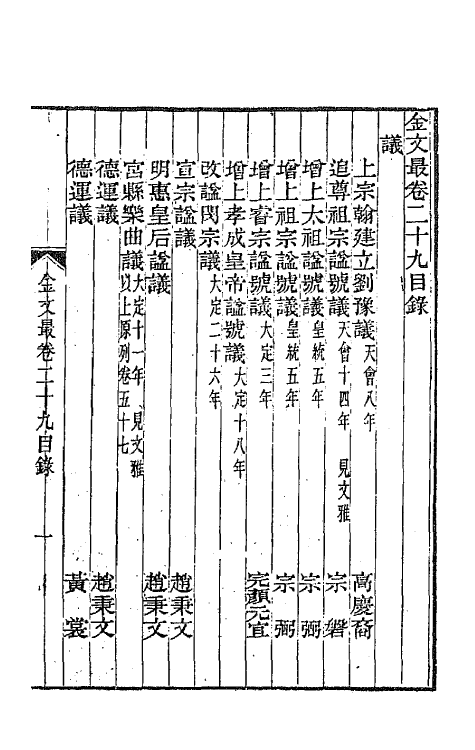 金文最卷二十九目錄
議
上宗翰建立劉豫議天會八年 高慶裔
追尊祖宗諡號議天會十四年 見文雅 宗磐
增上太祖諡號議皇統五年 宗弼
增上祖宗諡號議皇統五年 宗弼
增上睿宗諡號議大定三年 完顏元宜
增上孝成皇帝諡號議大定十八年
改諡閔宗議大定二十六年
宣宗諡議 趙秉文
明惠皇后諡議 趙秉文
宮縣樂曲議大定十一年 見文雅 以上原列卷五十七
德運議 趙秉文
德運議 黃裳
金文最卷二十九目錄 一